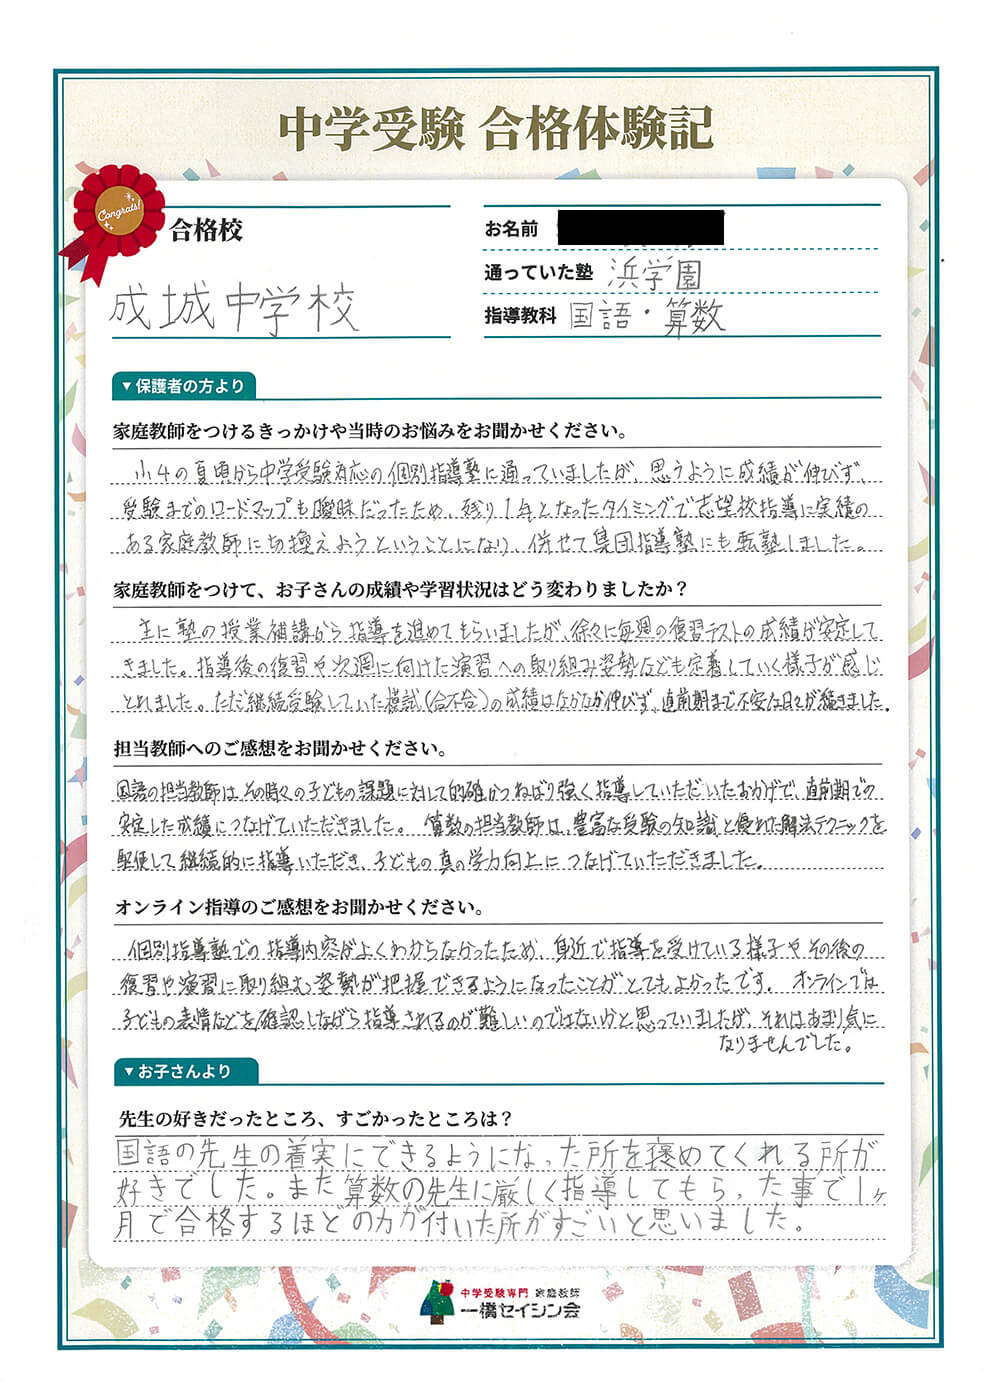 中学受験 合格体験記
Congrats!
合格校
成城中学校
お名前
通っていた塾 浜学園
指導教科 国語・算数
▼保護者の方より
家庭教師をつけるきっかけや当時のお悩みをお聞かせください。
小4の夏頃から中学受験対応の個別指導塾に通っていましたが、思うように成績が伸びず、
受験までのロードマップも曖昧だったため、残り1年となったタイミングで志望校指導に実績の
ある家庭教師に切換えようということになり、併せて集団指導塾にも転塾しました。
家庭教師をつけて、お子さんの成績や学習状況はどう変わりましたか？
主に塾の授業補講から指導を進めてもらいましたが、徐々に毎週の復習テストの成績が安定して
きました。指導後の復習や次週に向けた演習への取り組み姿勢なども定着していく様子が感じ
とれました。ただ継続受験していた模試(合不合)の成績はなかなか伸びず、直前期まで不安な日々が続きました。
担当教師へのご感想をお聞かせください。
国語の担当教師は、その時々の子どもの課題に対して的確かつねばり強く指導していただいたおかげで、直前期での
安定した成績につなげていただきました。 算数の担当教師は、豊富な受験の知識と優れた解法テクニックを
駆使して継続的に指導いただき、子どもの真の学力向上につなげていただきました。
オンライン指導のご感想をお聞かせください。
個別指導塾での指導内容がよくわからなかったため、身近で指導を受けている様子やその後の
復習や演習に取り組む姿勢が把握できるようになったことがとてもよかったです。 オンラインでは
子どもの表情などを確認しながら指導されるのが難しいのではないかと思っていましたが、それはあまり気に
なりませんでした。
▼お子さんより
先生の好きだったところ、すごかったところは？
国語の先生の着実にできるようになった所を褒めてくれる所が
好きでした。また算数の先生に厳しく指導してもらった事で1ヶ
月で合格するほどの力が付いた所がすごいと思いました。
中学受験専門 家庭教師
一橋セイシン会